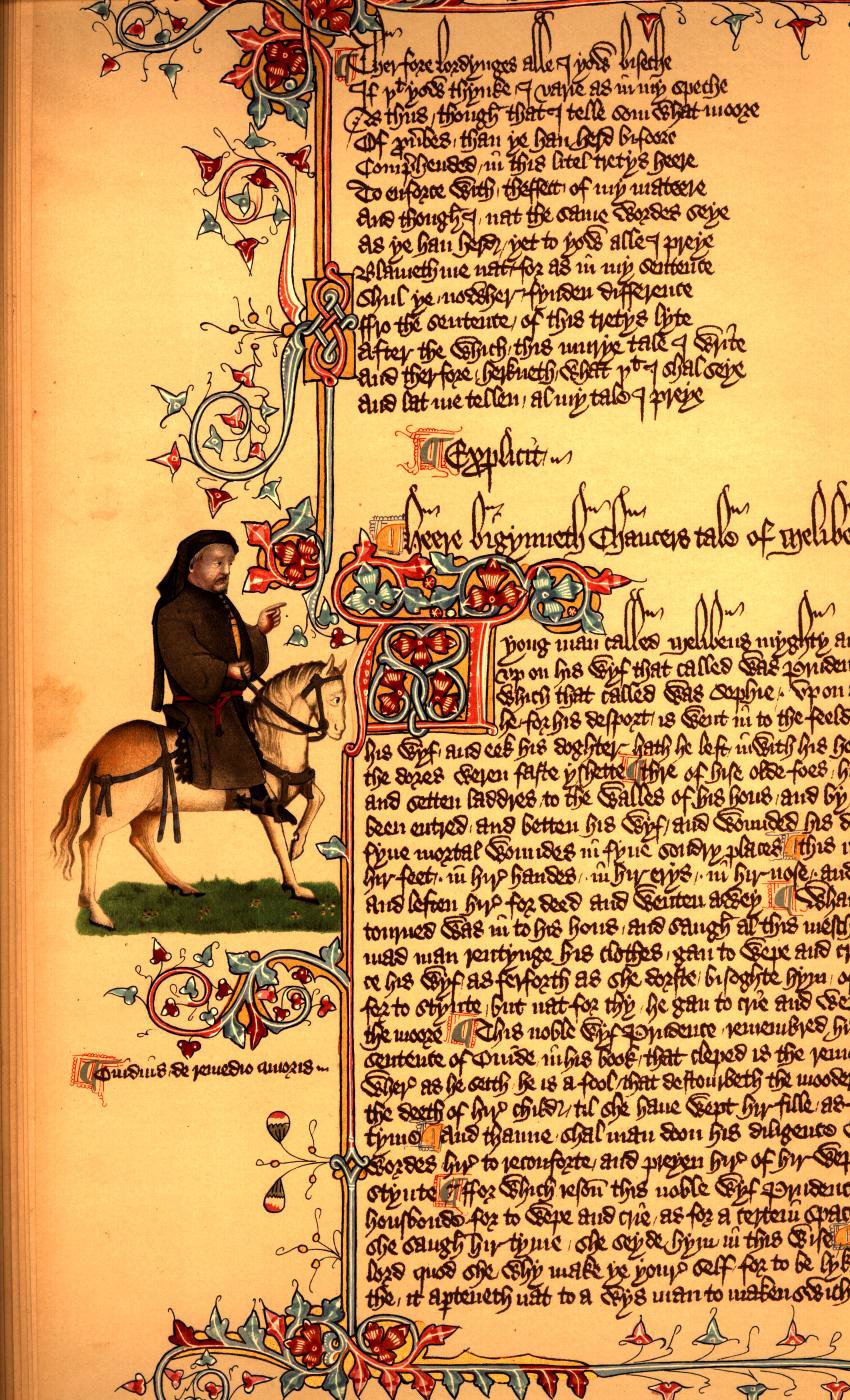 Therfore lordynges alle I yow biseche
If yt yow thynke I varie as in my speche
As thus though that I telle som what moore
Of prouerbes than ye han herd bifoore
Comprehended in this litel tretys heere
To enforce with theffect of my mateere
And though I nat the same wordes seye
As ye han herd yet to yow alle I preye
Blameth me nat for as in my sentence
Shul ye nowher fynden difference
ffro the sentence of this tretys lyte
After the which this murye tale I write
And therfore herkneth what yt I shal seye
And lat me tellen al my tale I preye
Explicit
Heere bigynneth Chaucers tale of Melibe
A yong man called Melibeus myghty
vp on his wyf that called was Pruden
which that called was Sophie vpon
he for his desport is went in to the feeld
his wyf and eek his doghter hath he left inwith his
the dores weren faste yshette thre of hise olde foes
and setten laddres to the walles of his hous and by
been entred and betten his wyf and wounded his
fyue mortal woundes in fyue sondry places this
hir feet in hir handes in hir erys in hir nose and
and leften hir for deed and wenten awey Whan
tourned was in to his hous and saugh al this mesch
mad man rentynge his clothes gan to wepe and
ce his wyf as ferforth as she dorste bisoghte hym
for to stynte but nat for thy he gan to crie and we
the moore This noble wyf Prudence remembred
sentence of Ouide in his book that cleped is the reme
wher as he seith he is a fool that destourbeth the mooder
the deeth of hir child til she haue wept hir fille as
tyme and thanne shal man doon his diligence
wordes hir to reconforte and preyen hir of hir wep
stynte ffor which reson this noble wyf Prudence
housbonde for to wepe and crie as for a certein space
she saugh hir tyme she seyde hym in this wise
lord quod she why make ye your self for to be lyk
the it aperteneth nat to a wys man to maken swich
Ouidius de remedio amoris